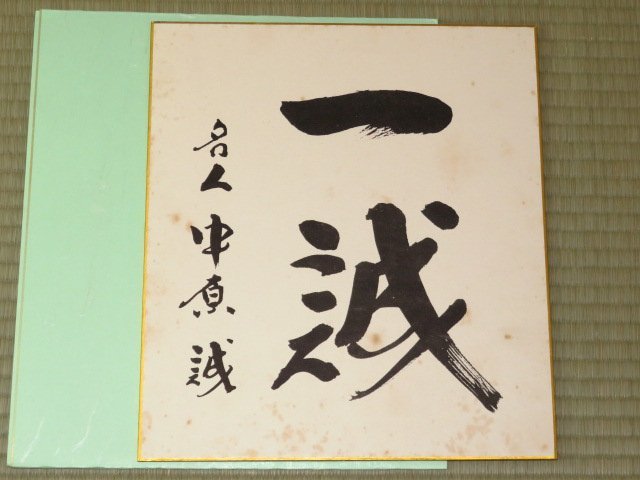 一誠
名人 中原誠